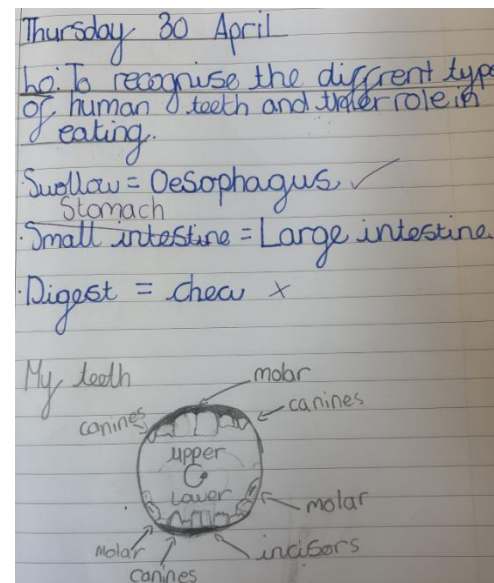 Thursday 30 April
Lo: To recognise the diffrent type
of human teeth and their role in
eating.
·Swollow = Oesophagus ✓
Stomach
·Small intestine = Large intestine
·Digest = chew ×
My teeth
molar
canines
canines
upper
Lower
molar
Molar
incisors
canines